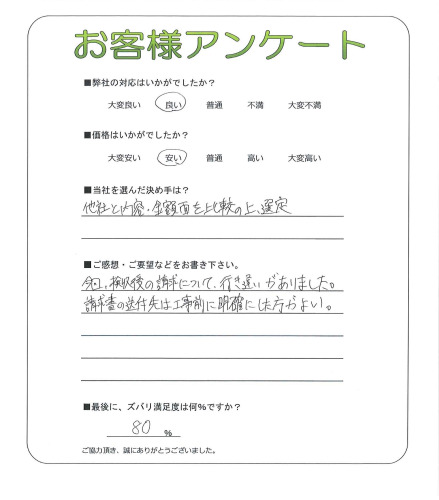 お客様アンケート
■弊社の対応はいかがでしたか?
大変良い 良い 普通 不満 大変不満
■価格はいかがでしたか?
大変安い 安い 普通 高い 大変高い
■当社を選んだ決め手は?
他社と内容・金額面を比較の上、選定
■ご感想・ご要望などをお書き下さい。
今回、検収後の請求について、行き違いがありました。
請求書の送付先は工事前に明確にした方がよい。
■最後に、ズバリ満足度は何%ですか?
80 %
ご協力頂き、誠にありがとうございました。